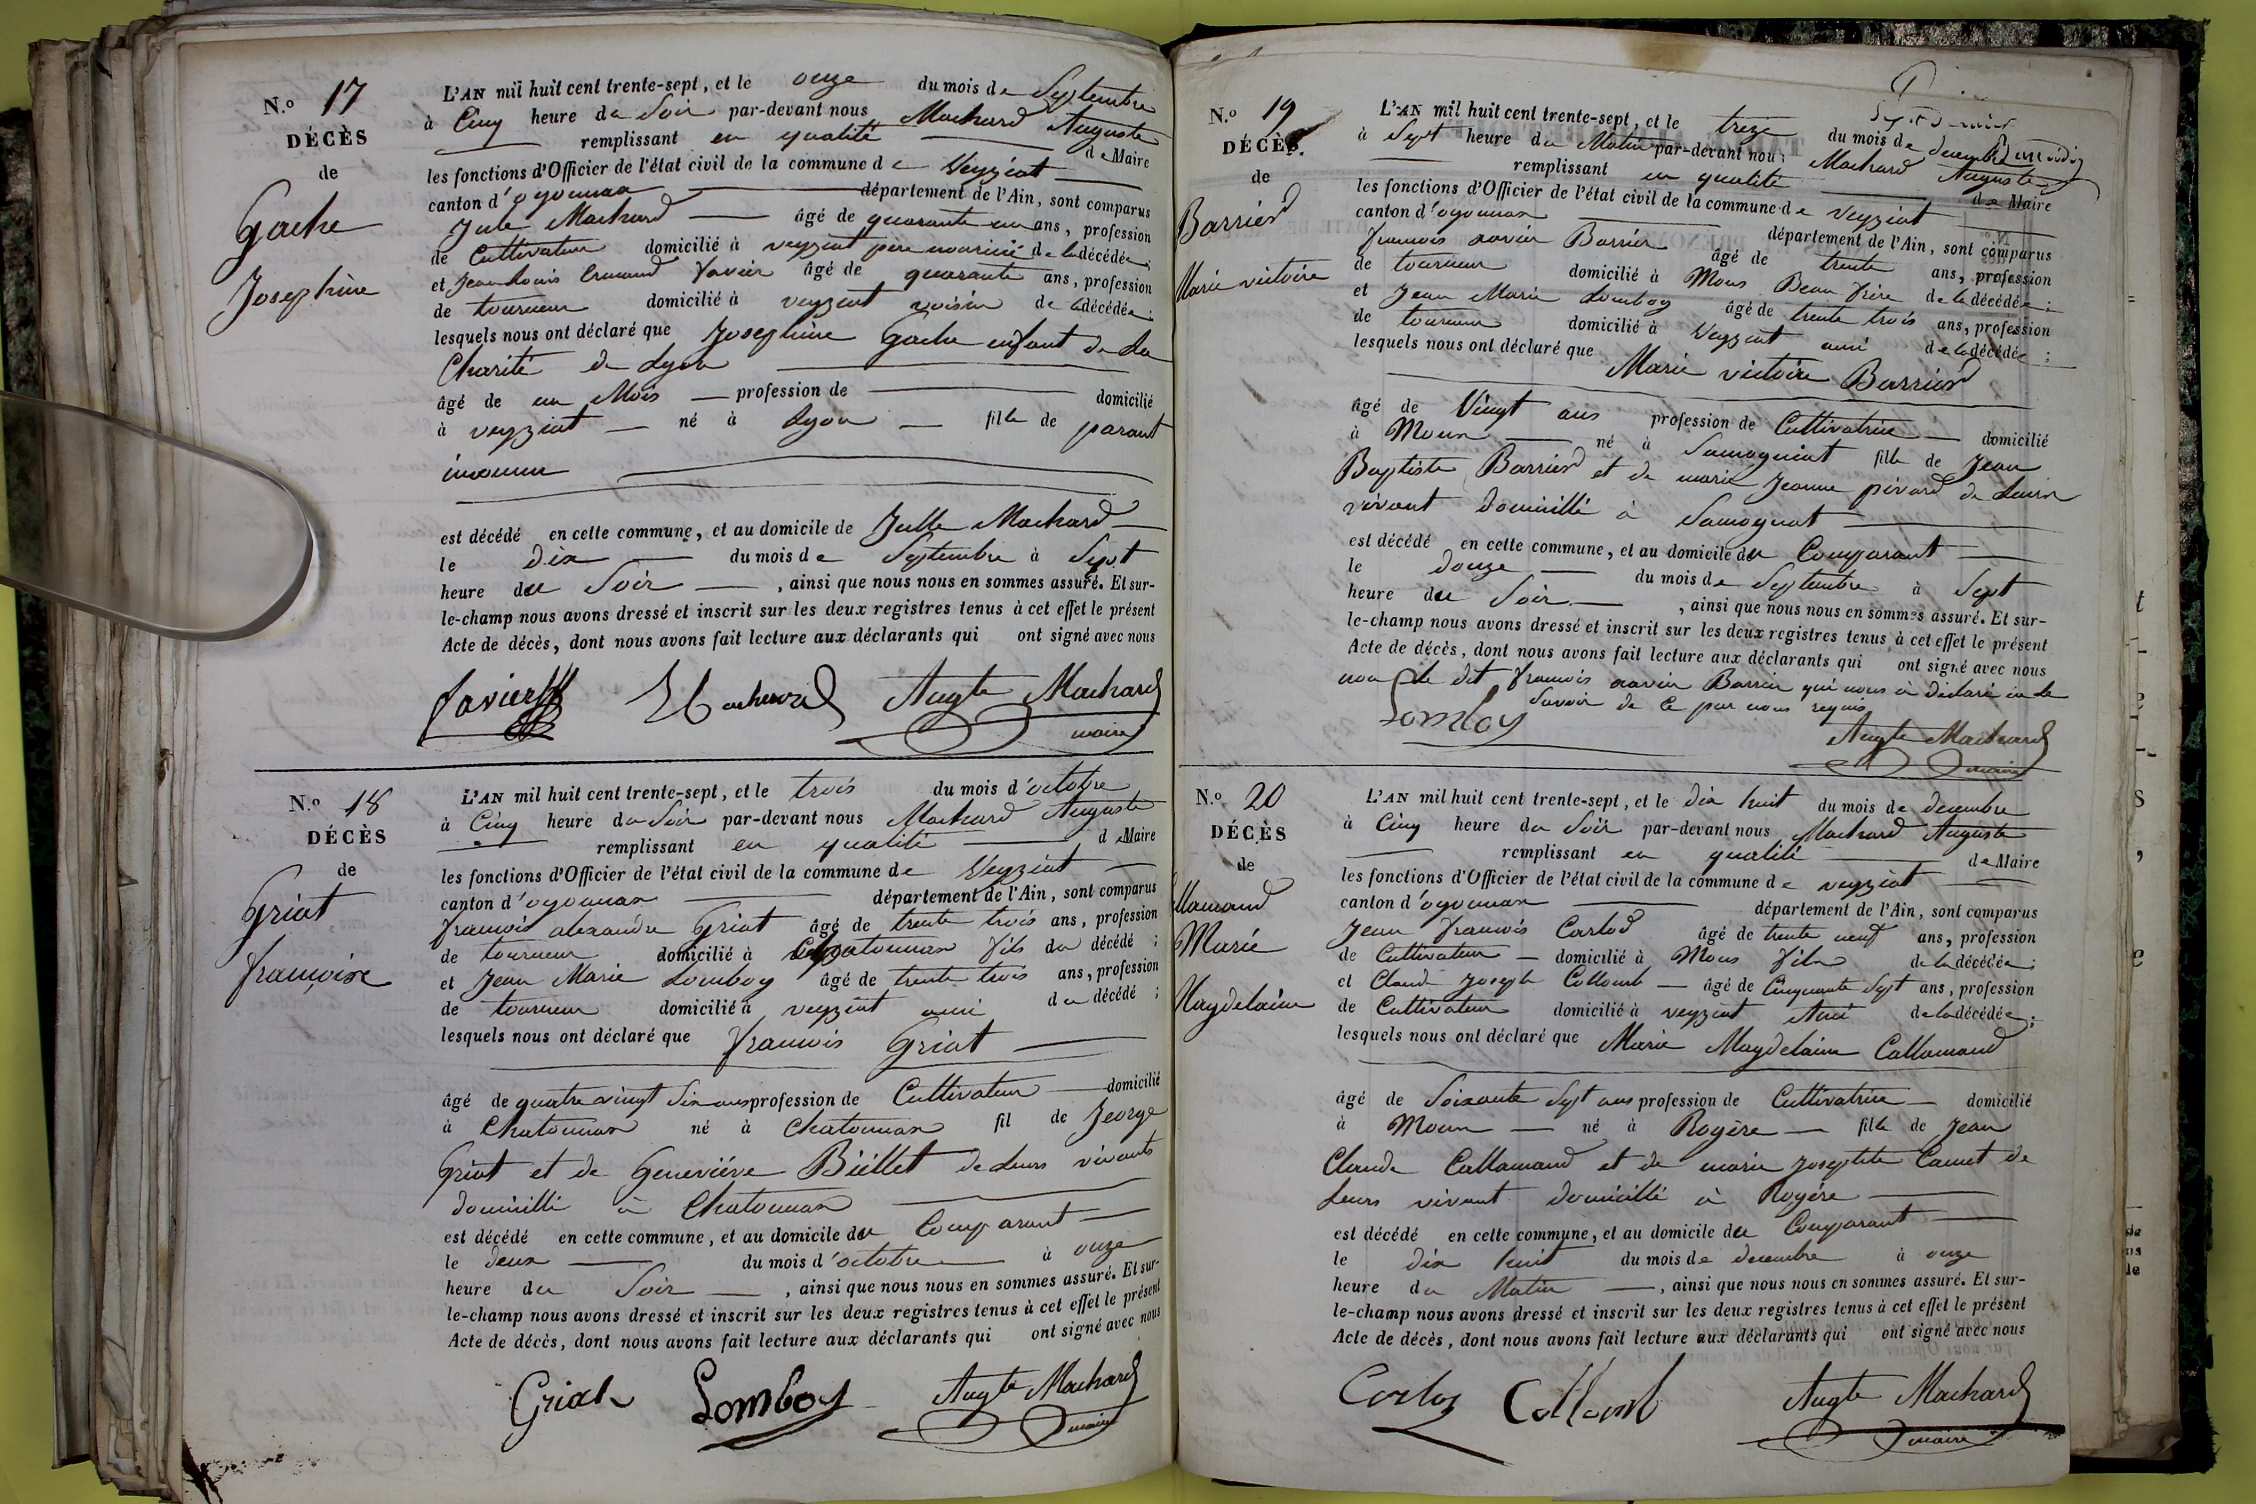 N.º 17
DÉCÈS
de
Gache
Josephine
L'AN mil huit cent trente-sept, et le onze du mois de Septembre
à Cinq heure du Soir par-devant nous Machard Auguste
remplissant en qualité de Maire
les fonctions d'Officier de l'état civil de la commune de Veyziat
canton d'oyonnax département de l'Ain, sont comparus
Jule Machard âgé de quarante un ans, profession
de Cultivateur domicilié à veyziat père nouricié de la décédée;
et Jean Louis Ermand Favier âgé de quarante ans, profession
de tourneur domicilié à veyziat voisin de la décédée;
lesquels nous ont déclaré que Josephine Gache enfant de La
Charité de Lyon
âgé de un Mois profession de domicilié
à veyziat né à Lyon fille de parant
inconnu
est décédé en cette commune, et au domicile de Julle Machard
le dix du mois de Septembre à Sept
heure du Soir, ainsi que nous nous en sommes assuré. Et sur-
le-champ nous avons dressé et inscrit sur les deux registres tenus à cet effet le présent
Acte de décès, dont nous avons fait lecture aux déclarants qui ont signé avec nous
Favier Machard Augte Machard
maire
N.º 18
DÉCÈS
de
Griot
françoise
L'AN mil huit cent trente-sept, et le trois du mois d'octobre
à Cinq heure du Soir par-devant nous Machard Auguste
remplissant en qualité de Maire
les fonctions d'Officier de l'état civil de la commune de Veyziat
canton d'oyonnax département de l'Ain, sont comparus
françois alexandre Griot âgé de trente trois ans, profession
de tourneur domicilié à Chatonnax fils du décédé;
et Jean Marie Lomboy âgé de trente trois ans, profession
de tourneur domicilié à veyziat ami du décédé;
lesquels nous ont déclaré que françois Griot
âgé de quatre vingt Six ans profession de Cultivateur domicilié
à Chatonnax né à Chatonnax fil de Jeorge
Griot et de Geneviéve Biéllet de Leurs vivants
domicillé à Chatonnax
est décédé en cette commune, et au domicile du Comparant
le deux du mois d'octobre à onze
heure du Soir, ainsi que nous nous en sommes assuré. Et sur-
le-champ nous avons dressé et inscrit sur les deux registres tenus à cet effet le présent
Acte de décès, dont nous avons fait lecture aux déclarants qui ont signé avec nous
Griot Lomboy Augte Machard
maire
N.º 19
DÉCÈS
de
Barriod
Marie victoire
L'AN mil huit cent trente-sept, et le treize du mois de decembre
à Sept heure du Matin par-devant nous Machard Auguste
remplissant en qualité de Maire
les fonctions d'Officier de l'état civil de la commune de Veyziat
canton d'oyonnax département de l'Ain, sont comparus
françois xavier Barrier âgé de trente ans, profession
de tourneur domicilié à Mons Beau frère de la décédée;
et Jean Marie Lomboy âgé de trente trois ans, profession
de tourneur domicilié à Veyziat ami de la décédée;
lesquels nous ont déclaré que
Marie victoire Barriod
âgé de Vingt ans profession de Cultivatrice domicilié
à Moun né à Samogniat fille de Jean
Baptiste Barriod et de marie Jeanne pivard de Leurs
vivant domicillé à Samognat
est décédé en cette commune, et au domicile du Comparant
le douze du mois de Septembre à Sept
heure du Soir, ainsi que nous nous en sommes assuré. Et sur-
le-champ nous avons dressé et inscrit sur les deux registres tenus à cet effet le présent
Acte de décès, dont nous avons fait lecture aux déclarants qui ont signé avec nous
non le dit françois xavier Barrier qui nous à déclaré ne le
Savoir de Ce par nous requis
Lomboy Augte Machard
maire
N.º 20
DÉCÈS
de
Marie
Magdelaine
L'AN mil huit cent trente-sept, et le dix huit du mois de decembre
à Cinq heure du Soir par-devant nous Machard Auguste
remplissant en qualité de Maire
les fonctions d'Officier de l'état civil de la commune de veyziat
canton d'oyonnax département de l'Ain, sont comparus
Jean françois Carlod âgé de trente neuf ans, profession
de Cultivateur domicilié à Mons fils de la décédée;
et Claude Joseph Collomb âgé de Cinquante Sept ans, profession
de Cultivateur domicilié à veyziat Ami de la décédée;
lesquels nous ont déclaré que Marie Magdelaine Callamand
âgé de Soixante Sept ans profession de Cultivatrice domicilié
à Moun né à Rogère fille de Jean
Claude Callamand et de marie Josephte Camet de
Leurs vivant domicillé à Rogére
est décédé en cette commune, et au domicile du Comparant
le dix huit du mois de decembre à onze
heure du Matin, ainsi que nous nous en sommes assuré. Et sur-
le-champ nous avons dressé et inscrit sur les deux registres tenus à cet effet le présent
Acte de décès, dont nous avons fait lecture aux déclarants qui ont signé avec nous
Carloz Collomb Augte Machard
maire